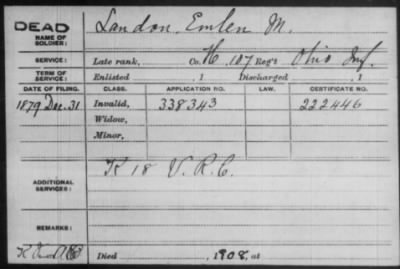 DEAD
NAME OF SOLDIER:
Landon, Emlen M.
SERVICE:
Late rank, Co. H, 107 Reg't Ohio Inf.
TERM OF SERVICE:
Enlisted , 1 Discharged , 1
DATE OF FILING. CLASS. APPLICATION NO. LAW. CERTIFICATE NO.
1879 Dec. 31 Invalid, 338343 222446
Widow,
Minor,
ADDITIONAL SERVICES:
K 18 V. R. C.
REMARKS:
Died , 1908, at